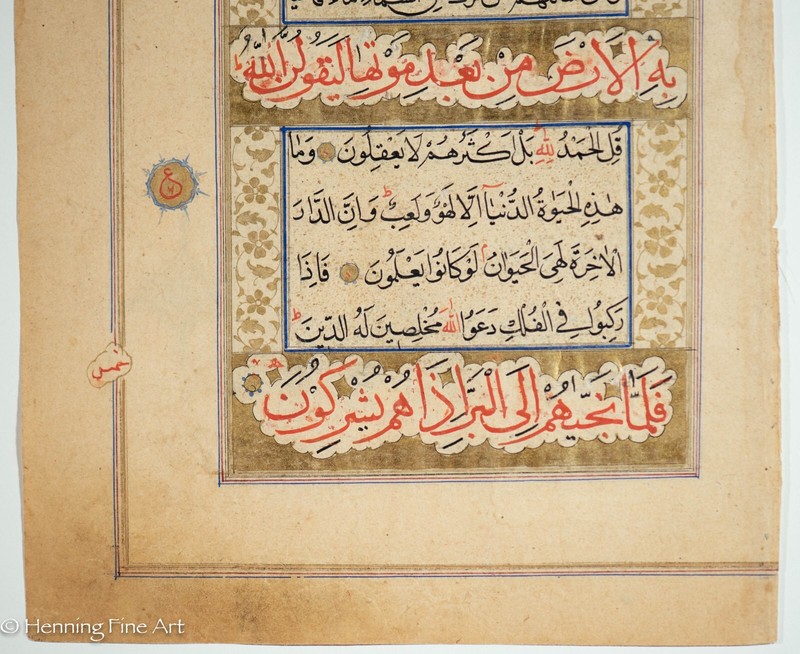 بِهِ الْاَرْضَ مِنْ بَعْدِ مَوْتِهَا لَيَقُولُنَّ اللّٰهُ ط
قُلِ الْحَمْدُ لِلّٰهِ بَلْ اَكْثَرُهُمْ لَا يَعْقِلُونَ وَمَا
هٰذِهِ الْحَيٰوةُ الدُّنْيَآ اِلَّا لَهْوٌ وَلَعِبٌ ط وَاِنَّ الدَّارَ
الْاٰخِرَةَ لَهِىَ الْحَيَوَانُ لَوْ كَانُوا يَعْلَمُونَ فَاِذَا
رَكِبُوا فِي الْفُلْكِ دَعَوُا اللّٰهَ مُخْلِصِينَ لَهُ الدِّينَ ط
فَلَمَّا نَجّٰيهُمْ اِلَى الْبَرِّ اِذَا هُمْ يُشْرِكُونَ
ع
خمس
© Henning Fine Art